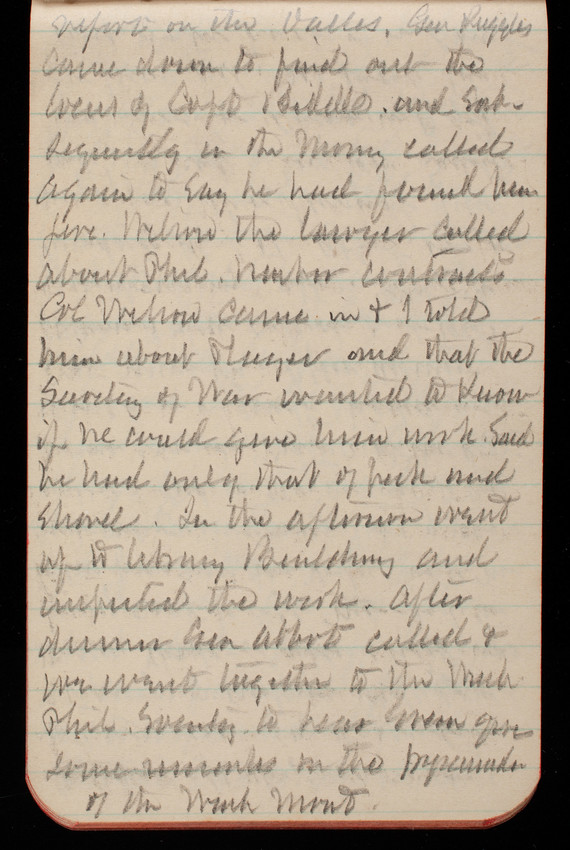 report on the Dalles. Gen Ruggles
came down to find out the
locus of Capt Biddle. and sub-
sequently in the morng called
again to say he had found him
here. Wilson the lawyer called
about Phil. harbor contracts
Col Wilson came in & I told
him about Thayer and that the
Secretary of War wanted to know
if he could give him work. Said
he had only that of pick and
shovel. In the afternoon went
up to library Building and
inspected the work. After
dinner Gen Abbot called &
we went together to the Wash
Phil. Society to hear Green give
some remarks on the
of the Wash Mont.